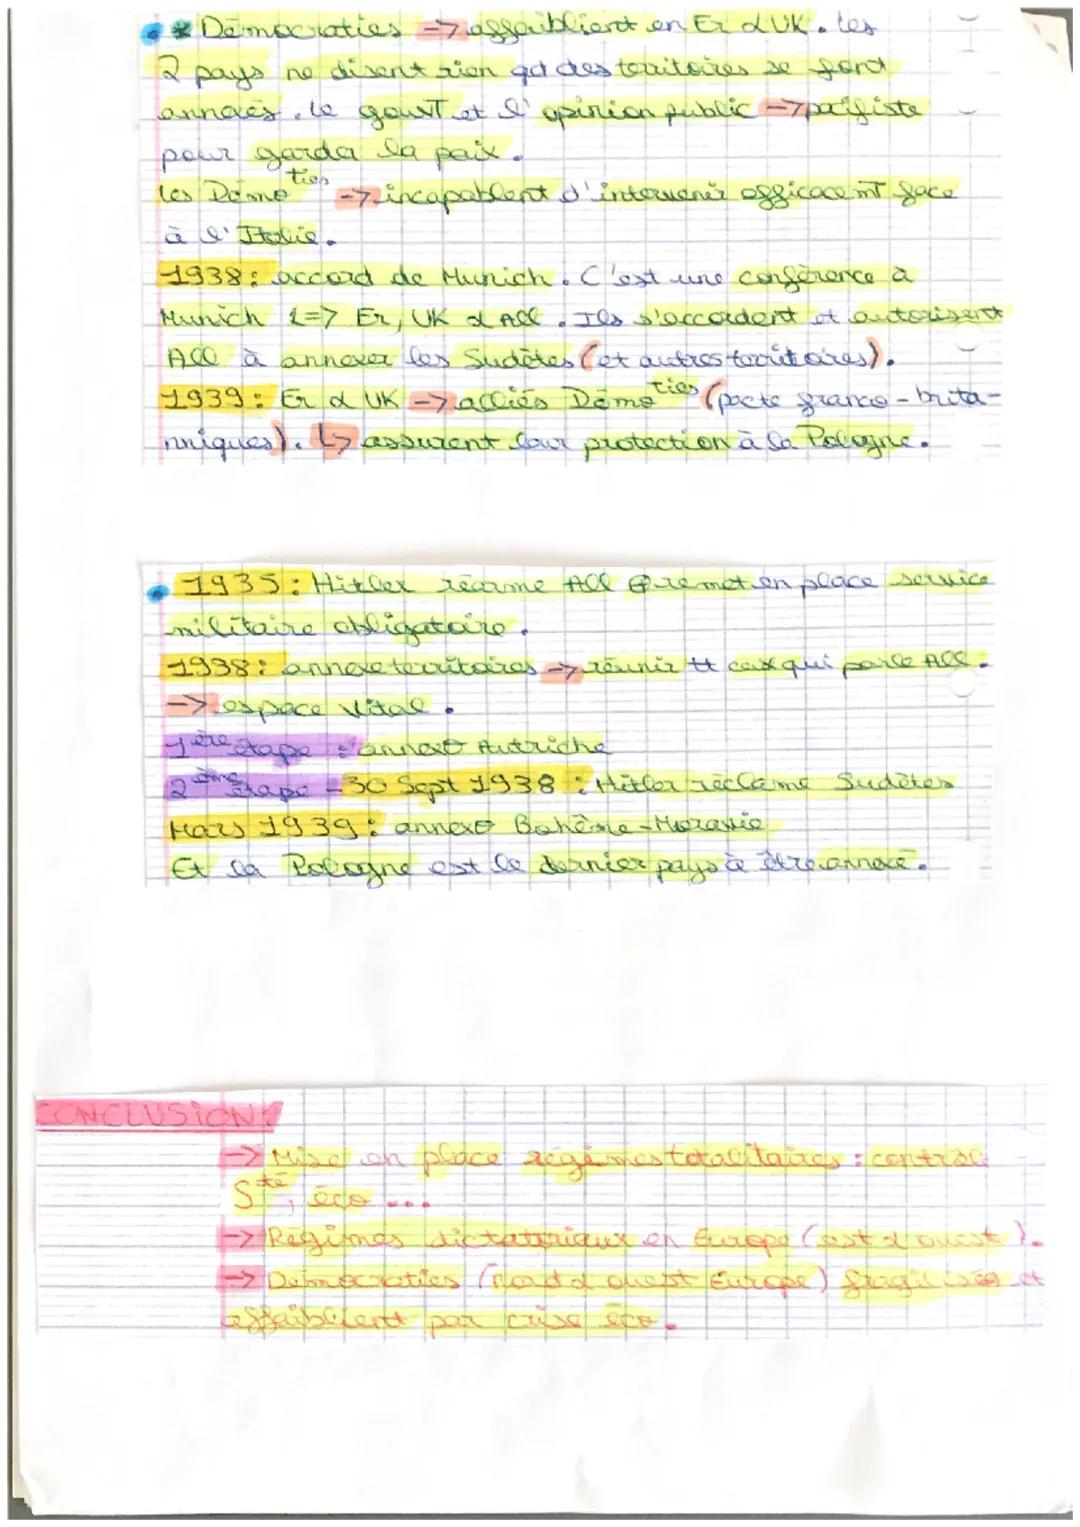 * Démocraties -> affaiblient en Fr & UK. les
2 pays ne disent rien qd des territoires se font
annexés. le gouvT et l'opinion public -> pacifiste
pour garder la paix.
les Démoties -> incapablent d'intervenir efficacemT face
à l'Italie.
1938: accord de Munich. C'est une conférence à
Munich => Fr, UK & All. Ils s'accordent et autorisent
All à annexer les Sudètes (et autres territoires).
1939: Fr & UK -> alliés Démoties (pacte franco-brita-
nniques). ↳ assurent leur protection à la Pologne.
1935: Hitler réarme All & remet en place service
militaire obligatoire.
1938: annexe territoires -> réunir tt ceux qui parle All.
-> espace vital.
1ère étape : annexe Autriche
2ème étape - 30 Sept 1938 : Hitler réclame Sudètes
Mars 1939 : annexe Bohême-Moravie
Et la Pologne est le dernier pays à être annexé.
CONCLUSION:
-> Mise en place régimes totalitaires : contrôle
Sté, éco ...
-> Régimes dictatoriaux en Europe (est & ouest).
-> Démocraties (nord & ouest Europe) fragilisés et
affaiblient par crise éco.